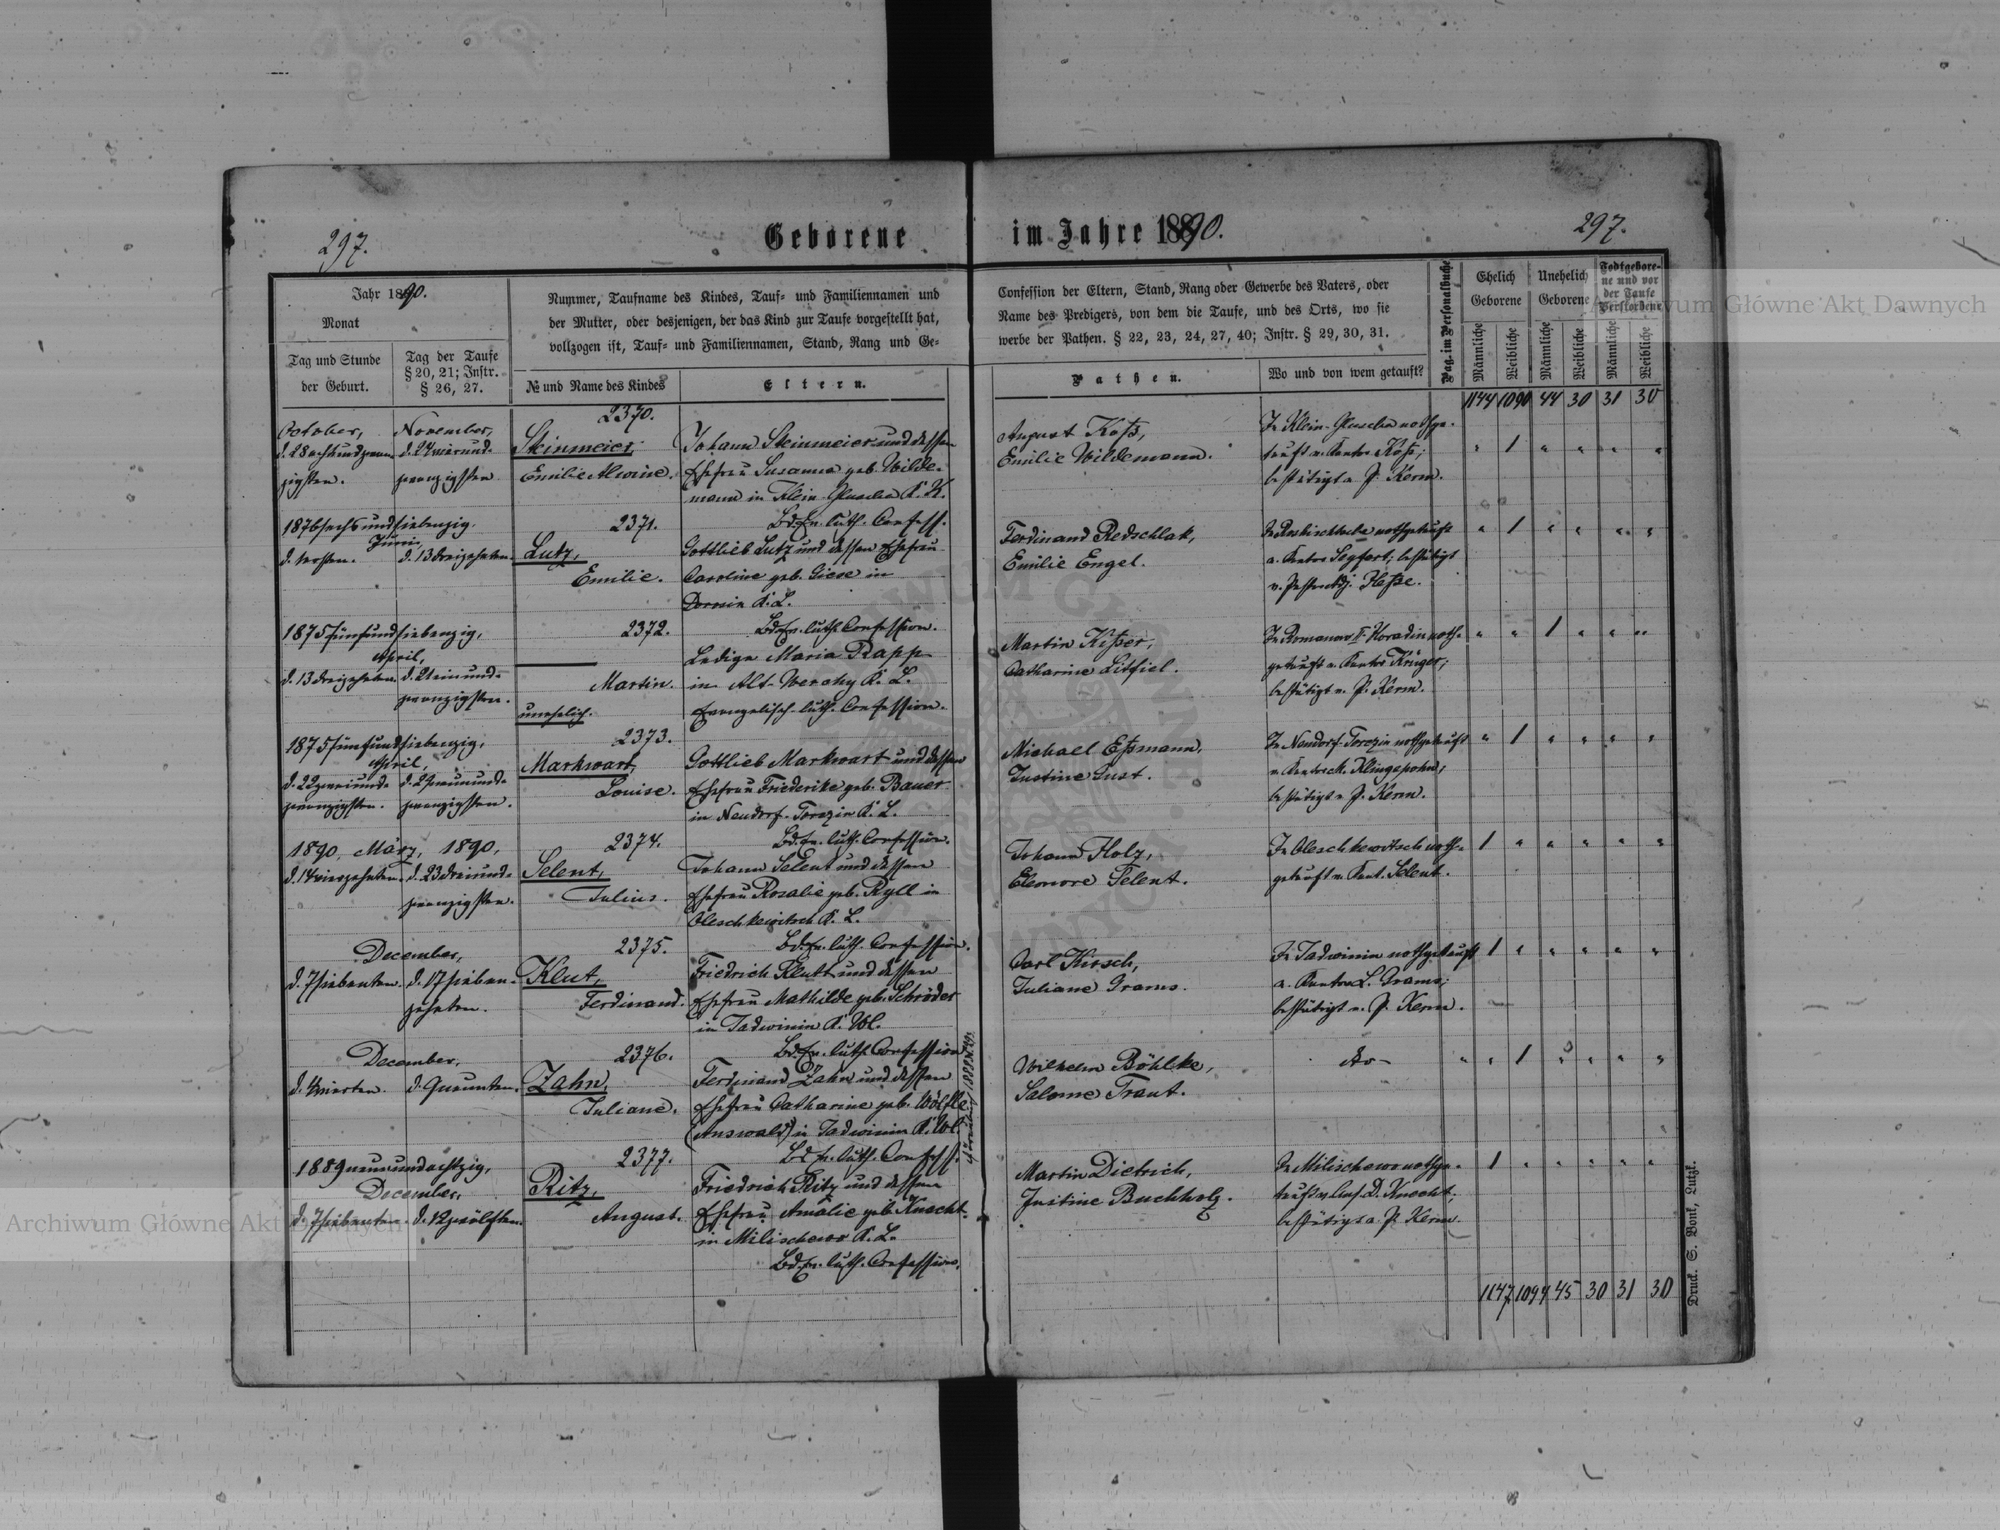 297.
Geborene
im Jahre 1890.
297.
Jahr 1890.
Monat
Tag und Stunde
der Geburt.
Tag der Taufe
§ 20, 21; Instr.
§ 26, 27.
Nummer, Taufname des Kindes, Tauf- und Familiennamen und
der Mutter, oder desjenigen, der das Kind zur Taufe vorgestellt hat,
vollzogen ist, Tauf- und Familiennamen, Stand, Rang und Ge-
№ und Name des Kindes
Eltern.
Confession der Eltern, Stand, Rang oder Gewerbe des Vaters, oder
Name des Predigers, von dem die Taufe, und des Orts, wo sie
werbe der Pathen. § 22, 23, 24, 27, 40; Instr. § 29, 30, 31.
Pathen.
Wo und von wem getauft?
Pag. im Personalbuche
Ehelich
Geborene
Unehelich
Geborene
Todtgebore-
ne und vor
der Taufe
Verstorbene
Männliche
Weibliche
Männliche
Weibliche
Männliche
Weibliche
1144 1090 44 30 31 30
October,
d. 28 achtundzwan-
zigsten.
November,
d. 24 vierund-
zwanzigsten
2370.
Steinmeier,
Emilie Alwine.
Johann Steinmeier und dessen
Ehefrau Susanna geb. Wilde-
mann in Klein-Gluscha K. K.
Bd. Ev. luth. Confess.
August Koss,
Emilie Wildemann.
In Klein-Gluscha nothge-
tauft v. Kantor Koss;
bestätigt v. P. Kerm.
1876 sechs und siebenzig,
Juni,
d. ersten.
d. 13 dreizehnten.
2371.
Lutz,
Emilie.
Gottlieb Lutz und dessen Ehefrau
Caroline geb. Giese in
K. L.
Bd. Ev. luth. Confession.
Ferdinand Redschlak,
Emilie Engel.
nothgetauft
v. Kantor bestätigt
v. Past. Adj. Hesse.
1875 fünfundsiebenzig,
April,
d. 13 dreizehnten.
d. 21 einund-
zwanzigsten.
2372.
Martin.
unehelich.
Ledige Maria Rapp
in Alt-Werchy K. L.
Evangelisch-luth. Confession.
Martin Kisser,
Catharine Litfiel.
In Romanow II- noth-
getauft v. Kantor Krüger;
bestätigt v. P. Kerm.
1875 fünfundsiebenzig,
April,
d. 22 zweiund-
zwanzigsten.
d. 29 neunund-
zwanzigsten.
2373.
Markwart,
Louise.
Gottlieb Markwart und dessen
Ehefrau Friederike geb. Bauer
in Neudorf-Torczin K. L.
Bd. Ev. luth. Confession.
Michael Essmann,
Justine Just.
In Neudorf-Torczin nothgetauft
v. Kantor M. Klingspohn;
bestätigt v. P. Kerm.
1890, März, 1890,
d. 14 vierzehnten.
d. 23 dreiund-
zwanzigsten.
2374.
Selent,
Julius.
Johann Selent und dessen
Ehefrau Rosalie geb. Ryll in
Oleschkewitsch K. L.
Bd. Ev. luth. Confession.
Johann Holz,
Eleonore Selent.
In Oleschkewitsch noth-
getauft v. Kant. Selent.
December,
d. 7 siebenten.
d. 17 sieben-
zehnten.
2375.
Klut,
Ferdinand.
Friedrich Klutt und dessen
Ehefrau Mathilde geb. Schröder
in Jadwinin K. Wl.
Bd. Ev. luth. Confession
Carl Kirsch,
Juliane Grams.
In Jadwinin nothgetauft
v. Kantor L. Grams;
bestätigt v. P. Kerm.
December,
d. 4 vierten.
d. 9 neunten.
2376.
Zahn,
Juliane.
Ferdinand Zahn und dessen
Ehefrau Catharine geb. Wölfle
(Answald) in Jadwinin K. Wl.
Bd. Ev. luth. Confess.
Wilhelm Böhlke,
Salome Traut.
do-
1889 neunundachtzig,
December,
d. 7 siebenten.
d. 12 zwölften.
2377.
Ritz,
August.
Friedrich Ritz und dessen
Ehefrau Amalie geb. Knecht
in Milischewo K. L.
Bd. Ev. luth. Confession.
Martin Dietrich,
Justine Buchholz.
In Milischewo nothge-
tauft v. D. Knecht;
bestätigt v. P. Kerm.
1147 1094 45 30 31 30
Druck. S. Bonk, Lutzk.
Archiwum Główne Akt Dawnych
Archiwum Główne Akt Dawnych